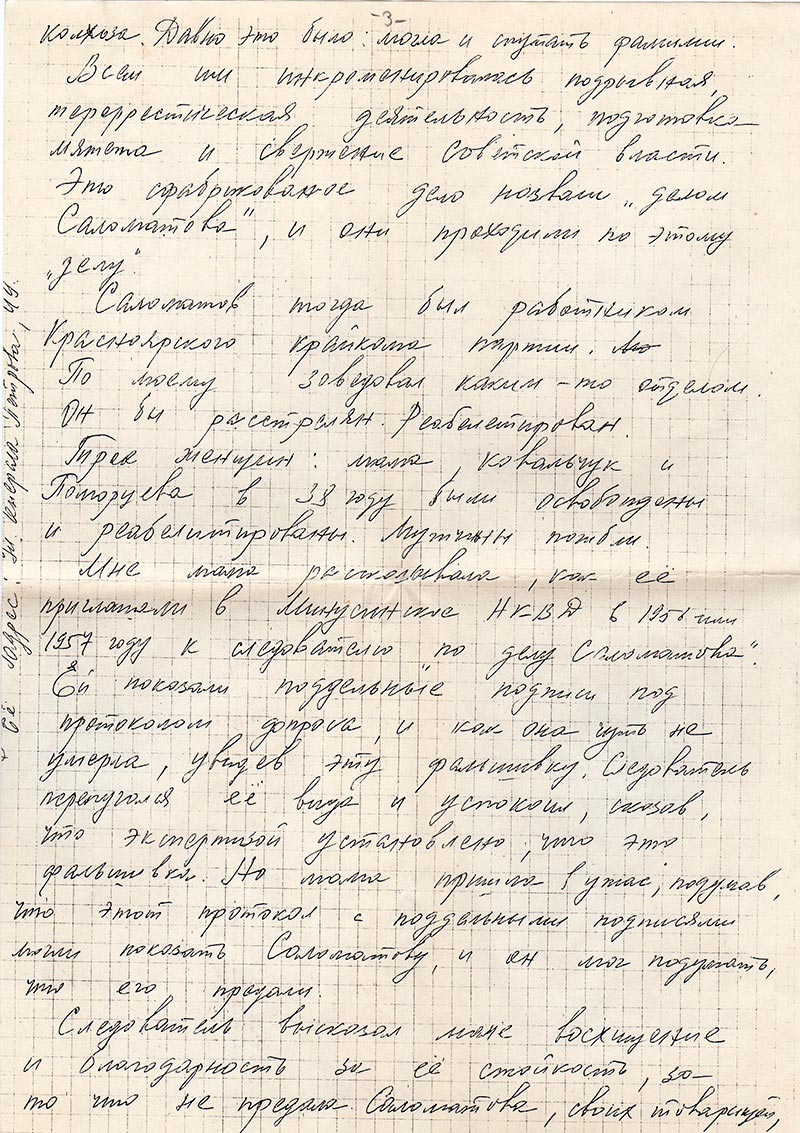 -3-
колхоза. Давно это было: могла и спутать фамилии.
Всем им инкременировалась подрывная,
терерристическая деятельность, подготовка
мятежа и свержение Советской власти.
Это сфабрикованное дело назвали „делом
Саломатова", и они проходили по этому
„делу".
Саломатов тогда был работником
Красноярского крайкома партии.
По моему заведовал каким-то отделом.
Он бы расстрелян. Реабелетирован.
Трех женщин: мама, Ковальчук и
Поморцева в 38 году были освобождены
и реабелитированы. Мужчины погибли.
Мне мама рассказывала, как её
приглашали в Минусинское НКВД в 1956 или
1957 году к следователю по „делу Саломатова".
Ей показали поддельные подписи под
протоколом допроса, и как она чуть не
умерла, увидев эту фальшивку. Следователь
перепугался её вида и успокоил, сказав,
что экспертизой установлено, что это
фальшивка. Но мама пришла в ужас, подумав,
что этот протокол с поддельными подписями
могли показать Саломатову, и он мог подумать,
что его предали.
Следователь высказал маме восхищение
и благодарность за её стойкость, за
то что не предала Саломатова, своих товарищей,
Её адрес: ул. Генерала Петрова, 49.